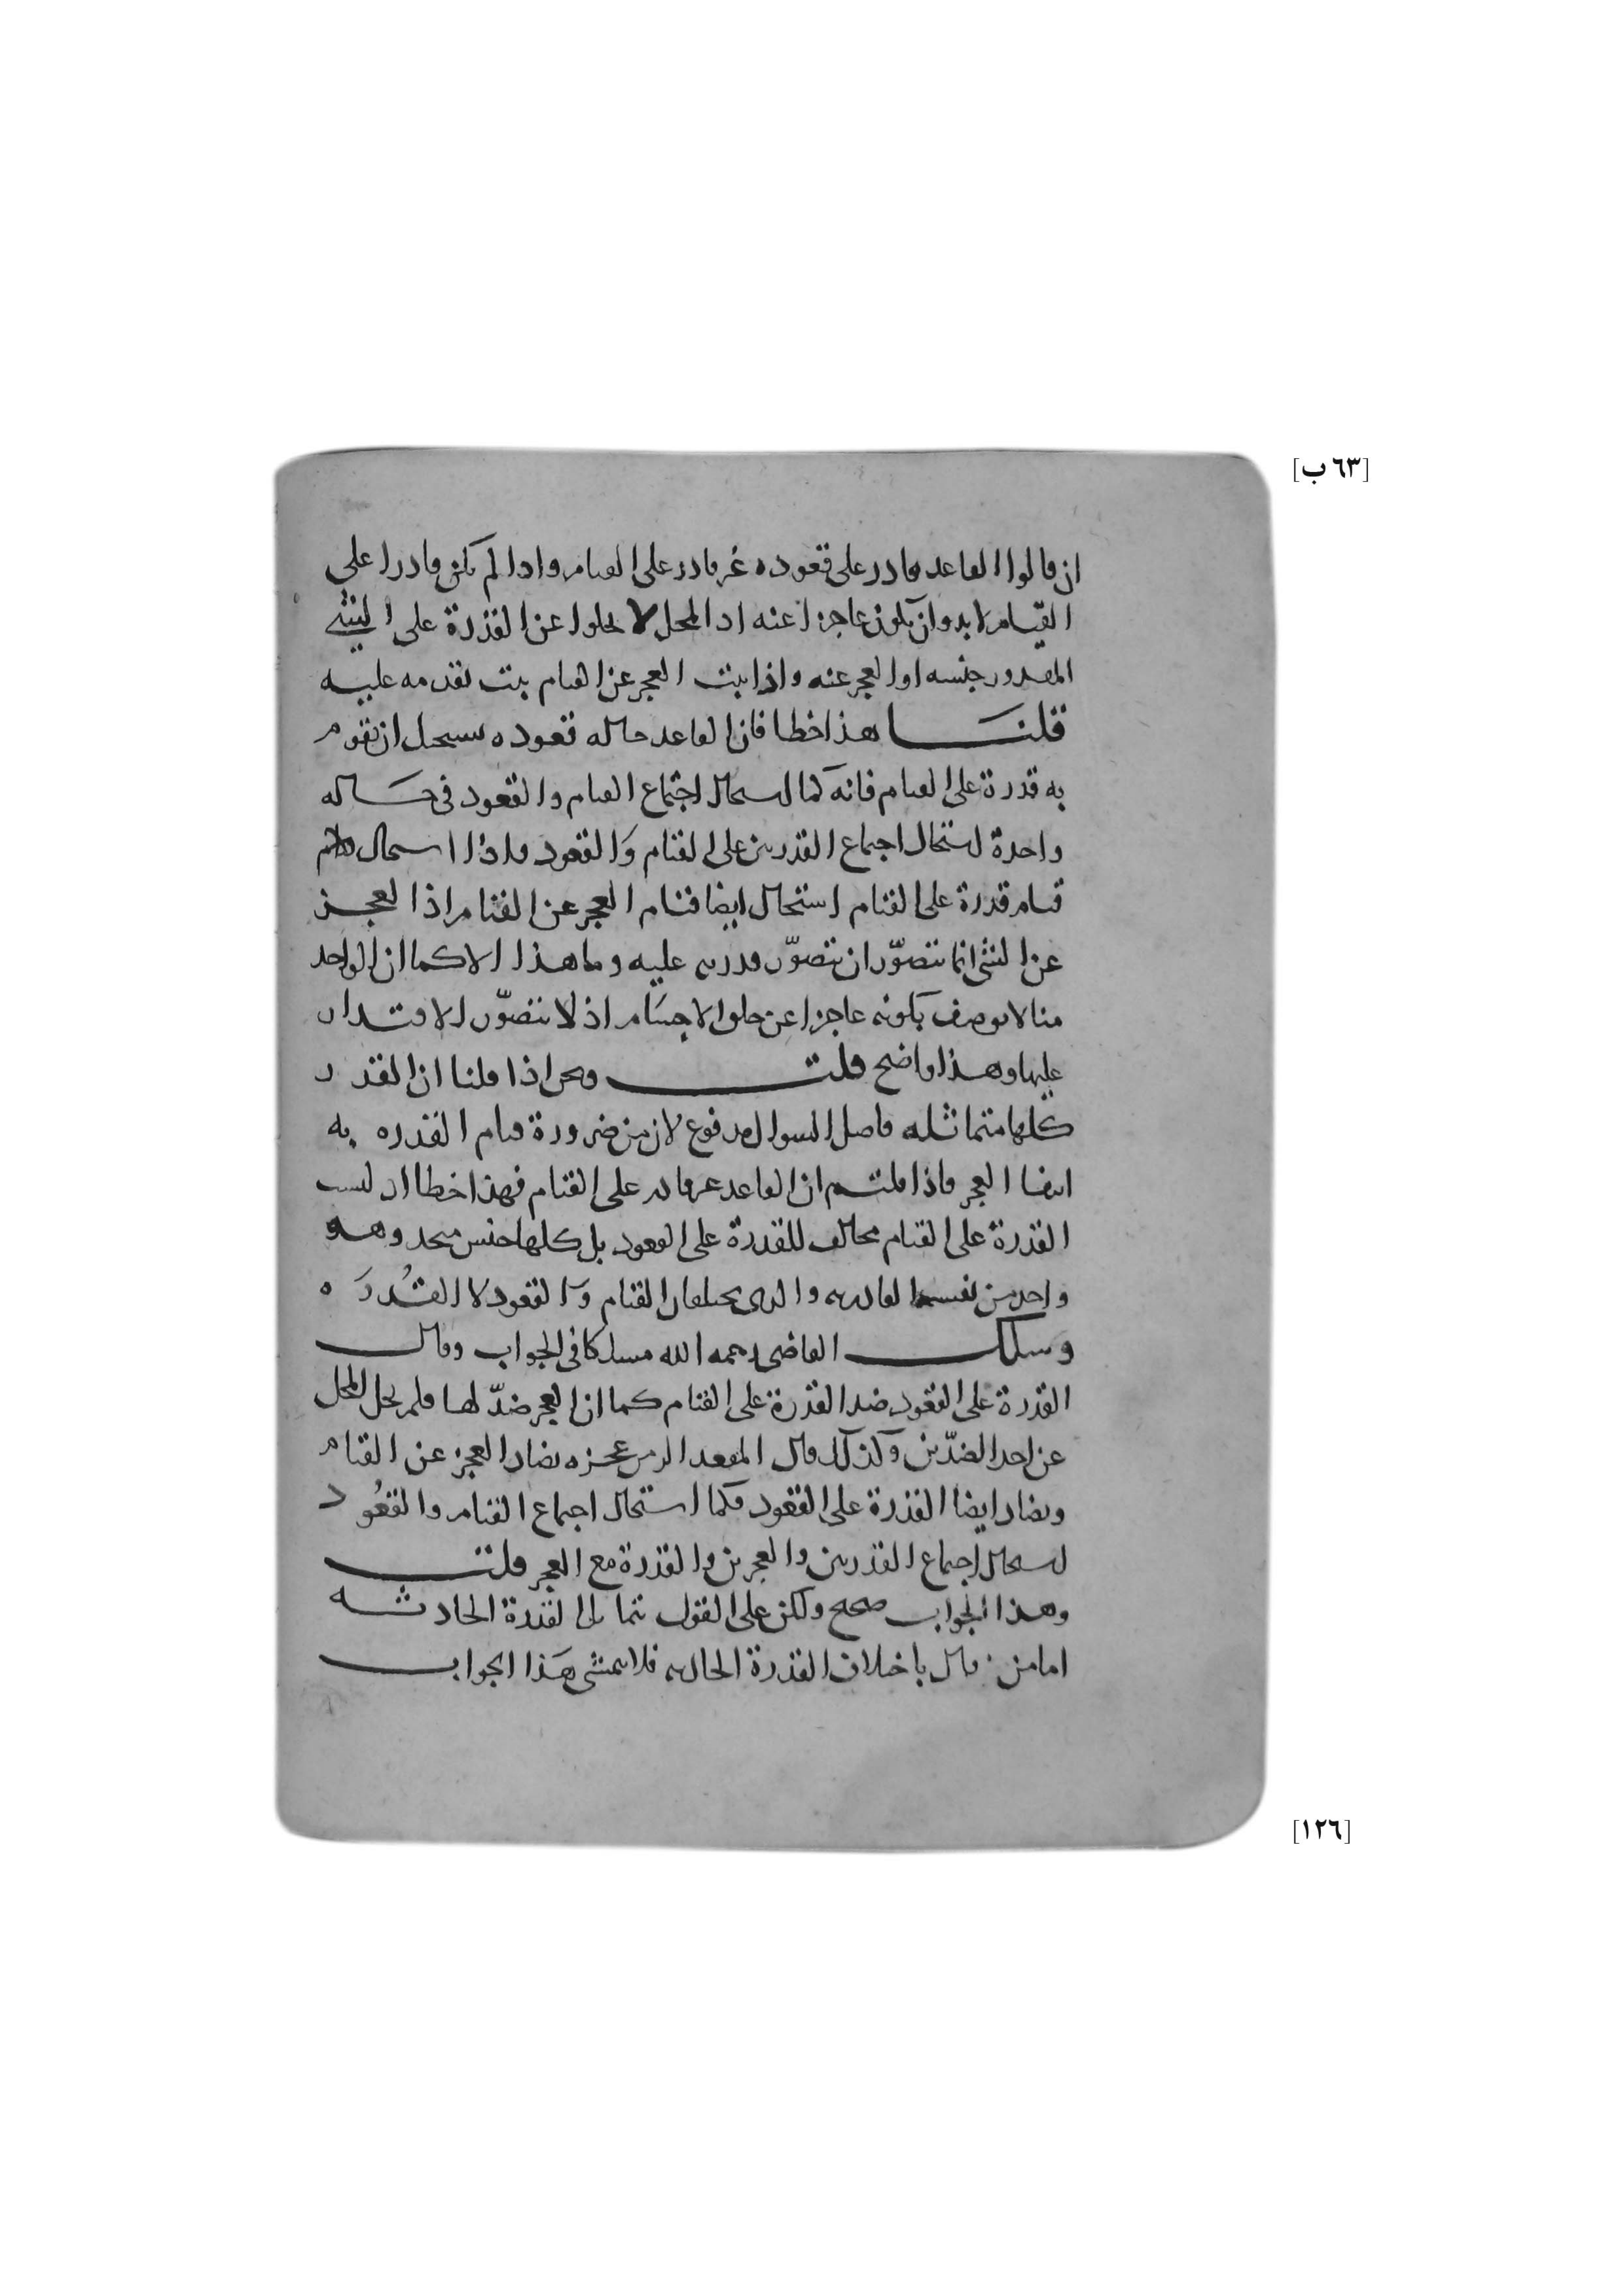 [٦٣ ب]
ان قالوا القاعد قادر على قعوده غير قادر على القيام واذا لم يكن قادرا على
القيام لابد وان يكون عاجزا عنه اذ المحل لا يخلوا عن القدرة على الشي
المقدور جنسه او العجز عنه واذا ثبت العجز عن القيام ثبت تقدمه عليه
قلنا هذا خطا فان القاعد حاله قعوده يستحيل ان تقوم
به قدرة على القيام فانه كما استحال اجتماع القيام والقعود في حاله
واحدة استحال اجتماع القدرتين على القيام والقعود واذا استحال
قيام قدرة على القيام استحال ايضا قيام العجز عن القيام اذ العجز
عن الشي انما يتصوّر ان يتصوّر قدرته عليه وما هذا الا كما ان الواحد
منا لا يوصف بكونه عاجزا عن خلق الاجسام اذ لا يتصوّر الاقتدار
عليها وهذا واضح قلت ونحن اذا قلنا ان القدر
كلها متماثله فاصل السوال مدفوع لان من ضرورة قيام القدره به
انتفا العجز فاذا قلتم ان القاعد غير قادر على القيام فهذا خطا اذ ليست
القدرة على القيام مخالف للقدرة على القعود بل كلها جنس متحد وهو
واحد من نفسه القادريه والذي يختلفان القيام والقعود لا القدره
وسلك القاضي رحمه الله مسلكا في الجواب وقال
القدرة على القعود ضد القدرة على القيام كما ان العجز ضدّ لها فلم يخل المحل
عن احد الضدّين وكذلك قال المقعد الزمن عجزه يضاد العجز عن القيام
ويضاد ايضا القدرة على القعود فكما استحال اجتماع القيام والقعود
استحال اجتماع القدرتين والعجزين والقدرة مع العجز قلت
وهذا الجواب صحيح ولكن على القول بتماثل القدرة الحادثه
اما من قال باختلاف القدرة الحادثه فلا يمشي هذا الجواب
[١٢٦]